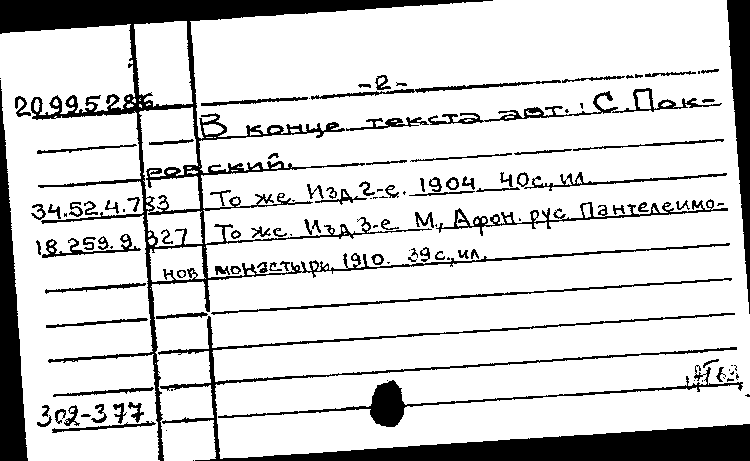 -2-
20.99.5.286.
В конце текста авт.: С. Пок-
ровский.
34.52.4.733 То же. Изд. 2-е. 1904. 40 с., ил.
18.259.9.327 То же. Изд. 3-е. М., Афон. рус. Пантелеимо-
нов монастырь, 1910. 39 с., ил.
302-377